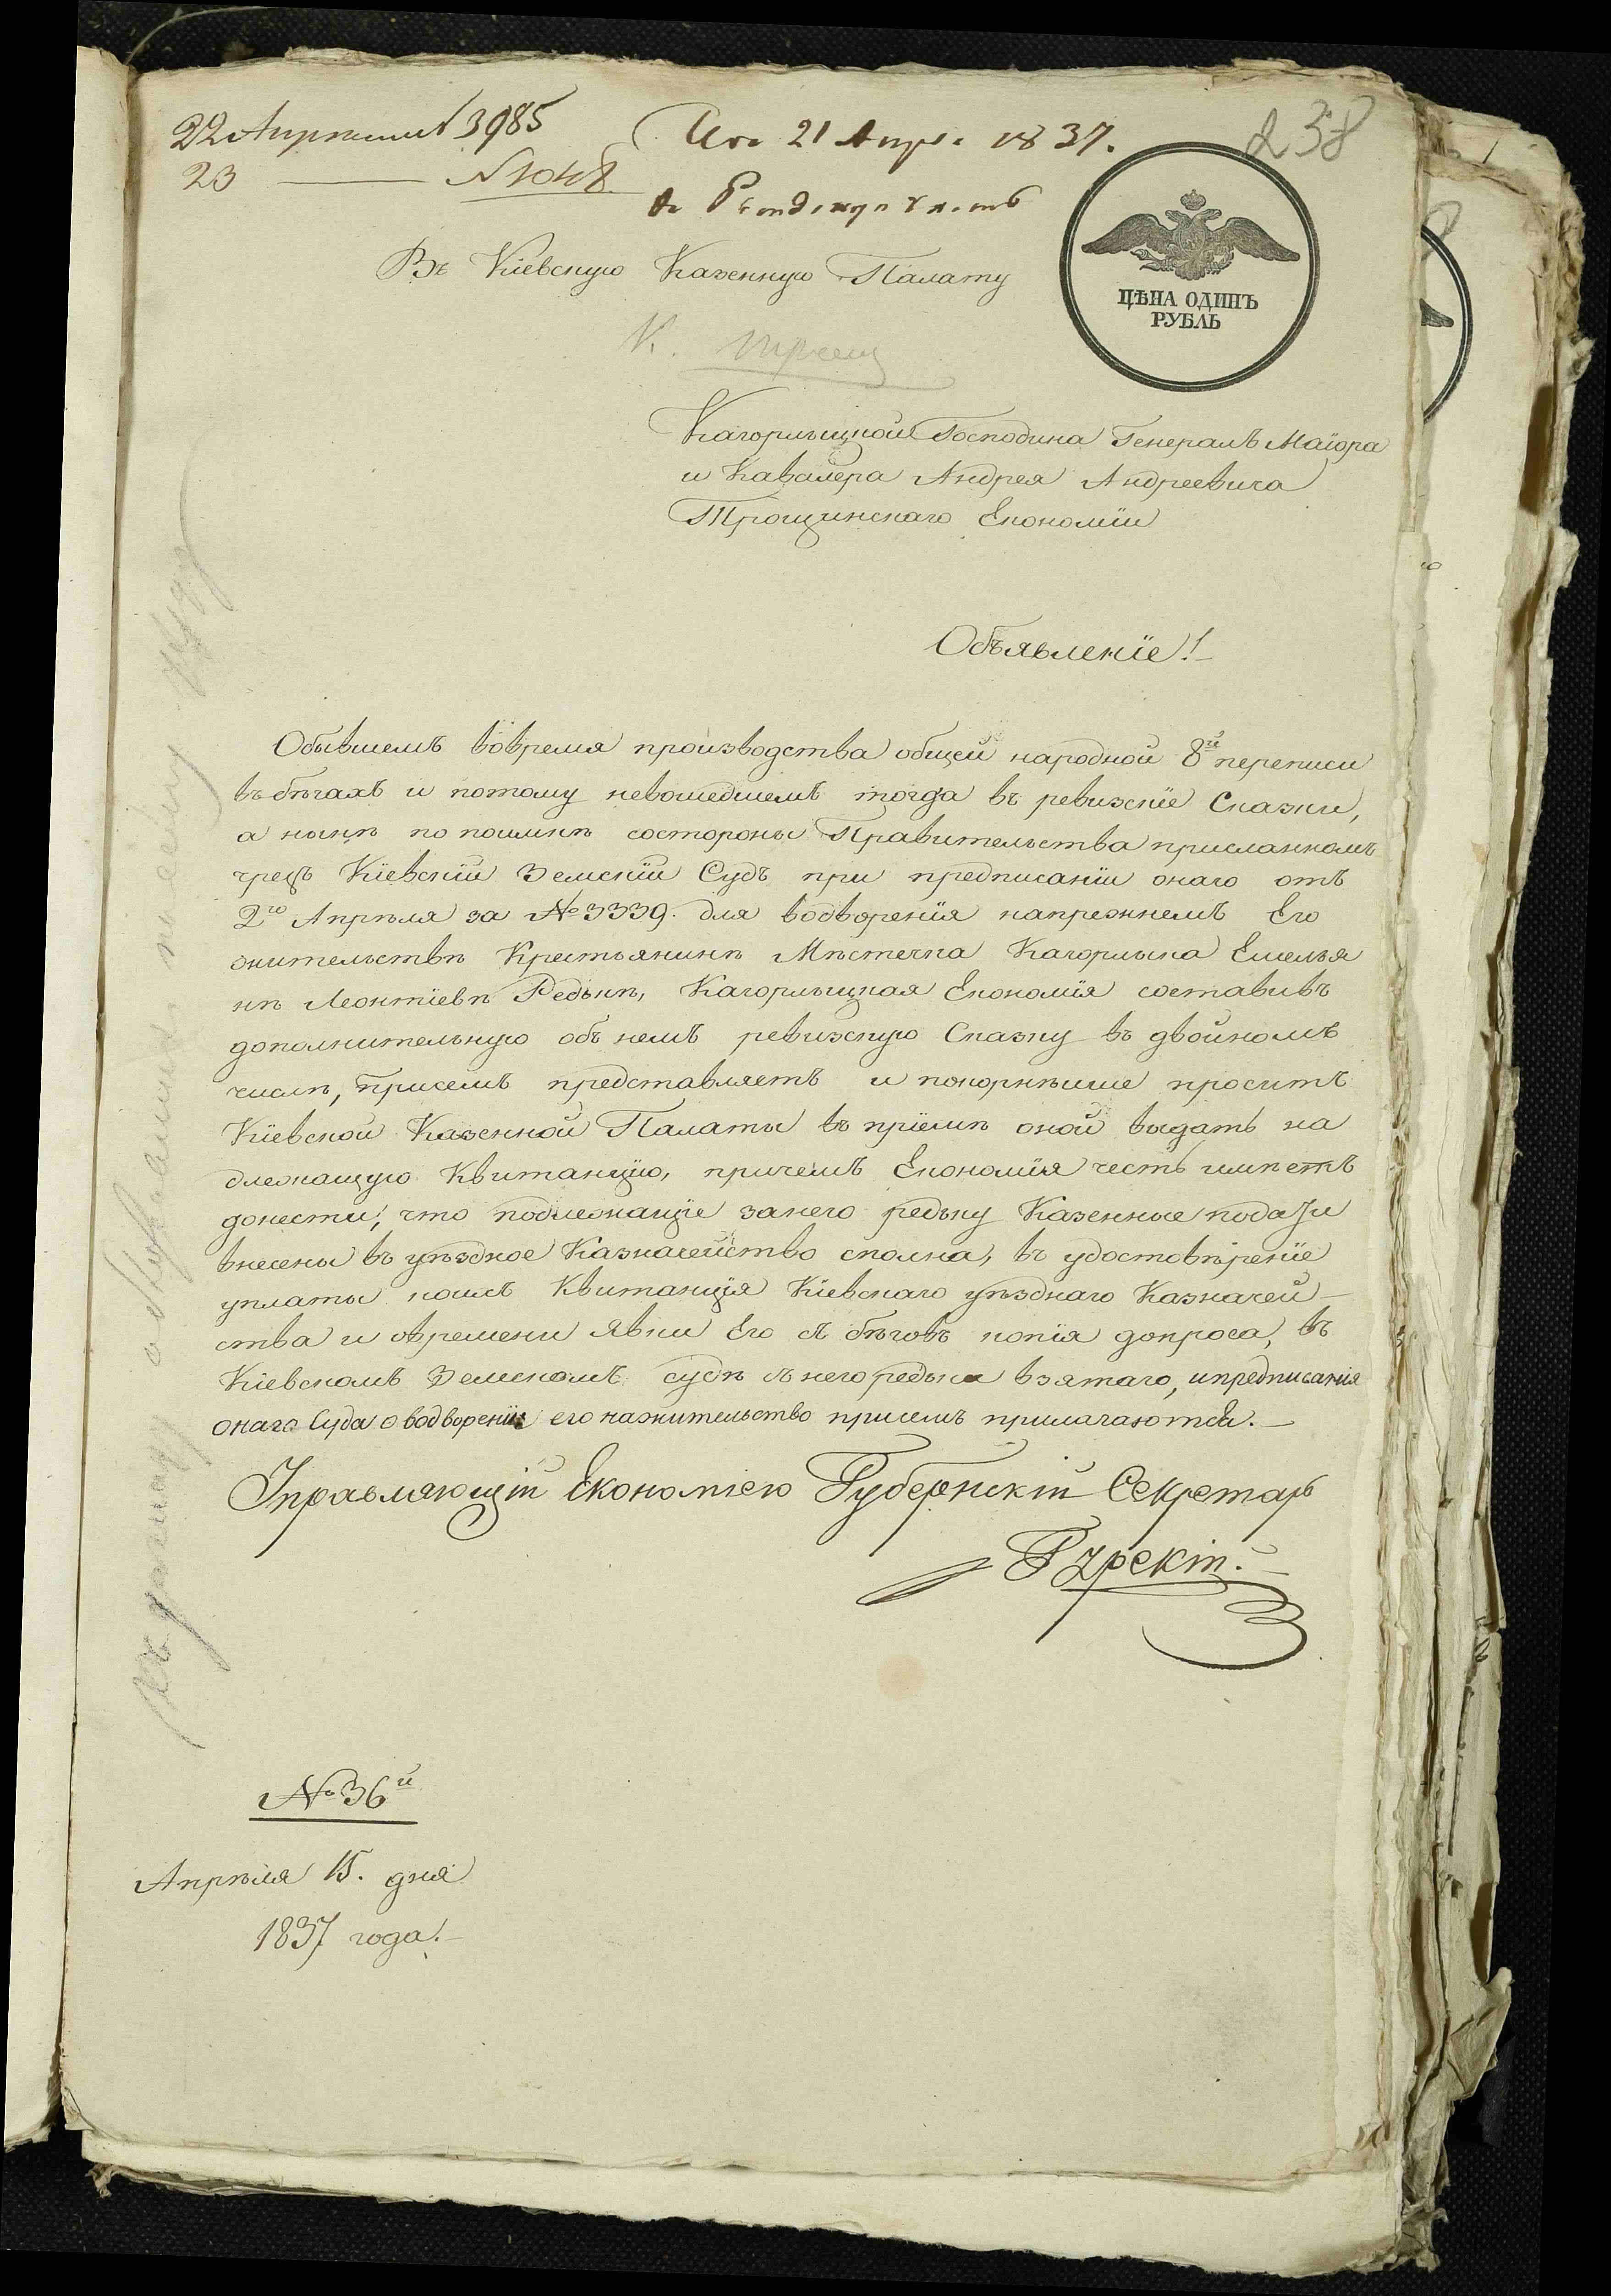 22 Апрѣля № 3985
23 — № 1048
21 Апр. 1837.
238
Въ Кіевскую Казенную Палату
ЦѢНА ОДИНЪ
РУБЛЬ
Кагорлыцкой Господина Генералъ Маіора
и Кавалера Андрея Андреевича
Трощинскаго Економіи
Объявленіе!
Обывшемъ вовремя производства общей народной 8й переписи
въ бѣгахъ и потому невошедшемъ тогда въ ревизскіе Сказки,
а нынѣ по поимкѣ состороны Правительства присланномъ
чрезъ Кіевскій Земскій Судъ при предписаніи онаго отъ
2го Апрѣля за № 3339. для водворенія напрежнемъ Его
жительствѣ Крестьянинѣ Мѣстечка Кагорлыка Емелья
нѣ Леонтіевѣ Редькѣ, Кагорлыцкая Економія составивъ
дополнительную объ немъ ревизскую Сказку въ двойномъ
числѣ, присемъ представляетъ и покорнѣише проситъ
Кіевской Казенной Палаты въ пріемѣ оной выдать на
длежащую Квитанцію, причемъ Економія честь имѣетъ
донести, что подлежащіе занего редьку Казенные подати
внесены въ уѣздное Казначейство сполна, въ удостовѣреніе
уплаты коихъ Квитанція Кіевскаго уѣзднаго Казначей-
ства и овремени явки Его съ бѣговъ копія допроса, въ
Кіевскомъ Земскомъ судѣ съ него редьки взятаго, ипредписанія
онаго Суда о водвореніи его нажительство присемъ прилагаются.
Управляющій Економіею Губернскій Секретарь
№ 36й
Апрѣля 15. дня
1837 года.